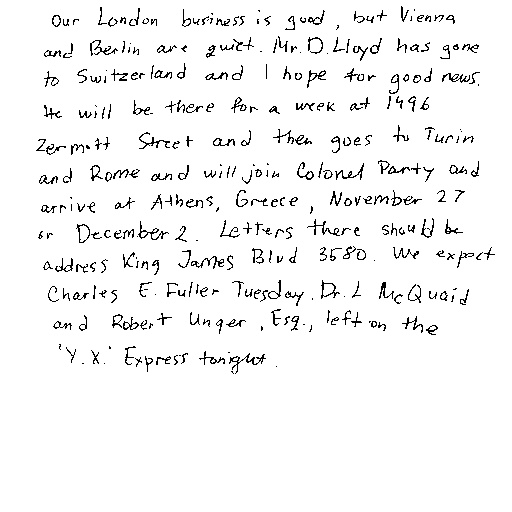 Our London business is good, but Vienna
and Berlin are quiet. Mr. D. Lloyd has gone
to Switzerland and I hope for good news.
He will be there for a week at 1496
Zermott Street and then goes to Turin
and Rome and will join Colonel Party and
arrive at Athens, Greece, November 27
or December 2. Letters there should be
address King James Blvd 3580. We expect
Charles E. Fuller Tuesday. Dr. L McQuaid
and Robert Unger, Esq., left on the
'Y.X.' Express tonight.